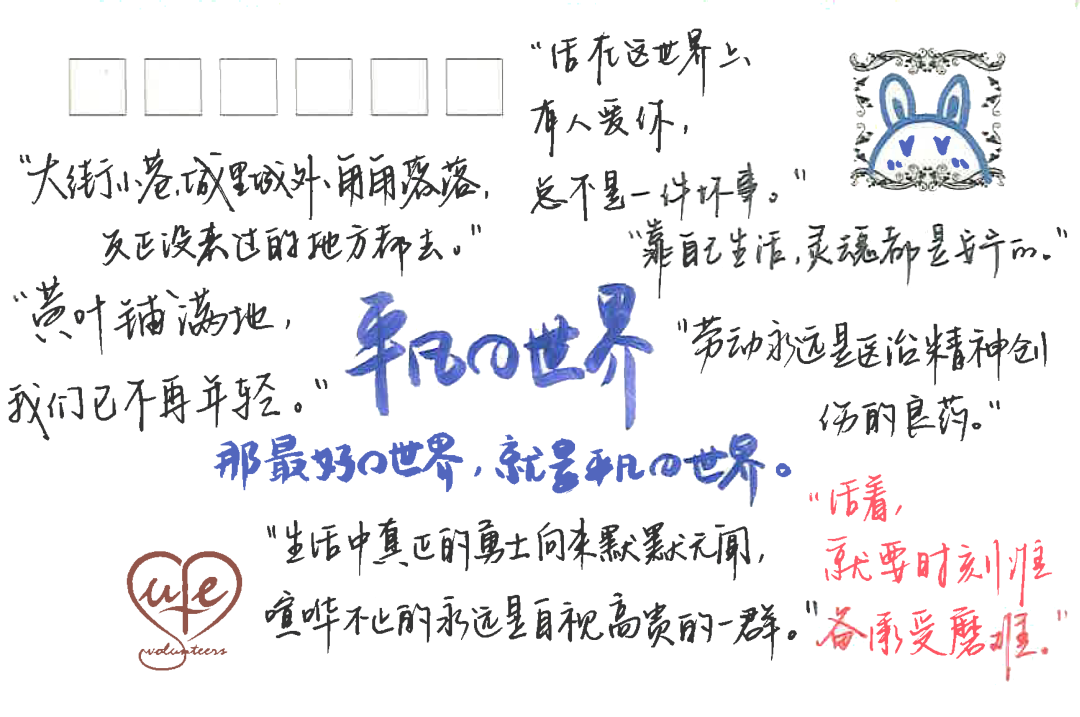 "活在这世界上
有人爱你，
总不是一件坏事。"
"大街小巷，城里城外，雨雨落落，
反正没来过的地方都去。"
"靠自己生活，灵魂都是安宁的。"
"黄叶铺满地，
我们已不再年轻。"
平凡の世界
"劳动永远是医治精神创
伤的良药。"
那最好の世界，就是平凡の世界。
"生活中真正的勇士向来默默无闻，
喧哗不止的永远是自视高贵的一群。"
"活着，
就要时刻准
备承受磨难。"
life
volunteers